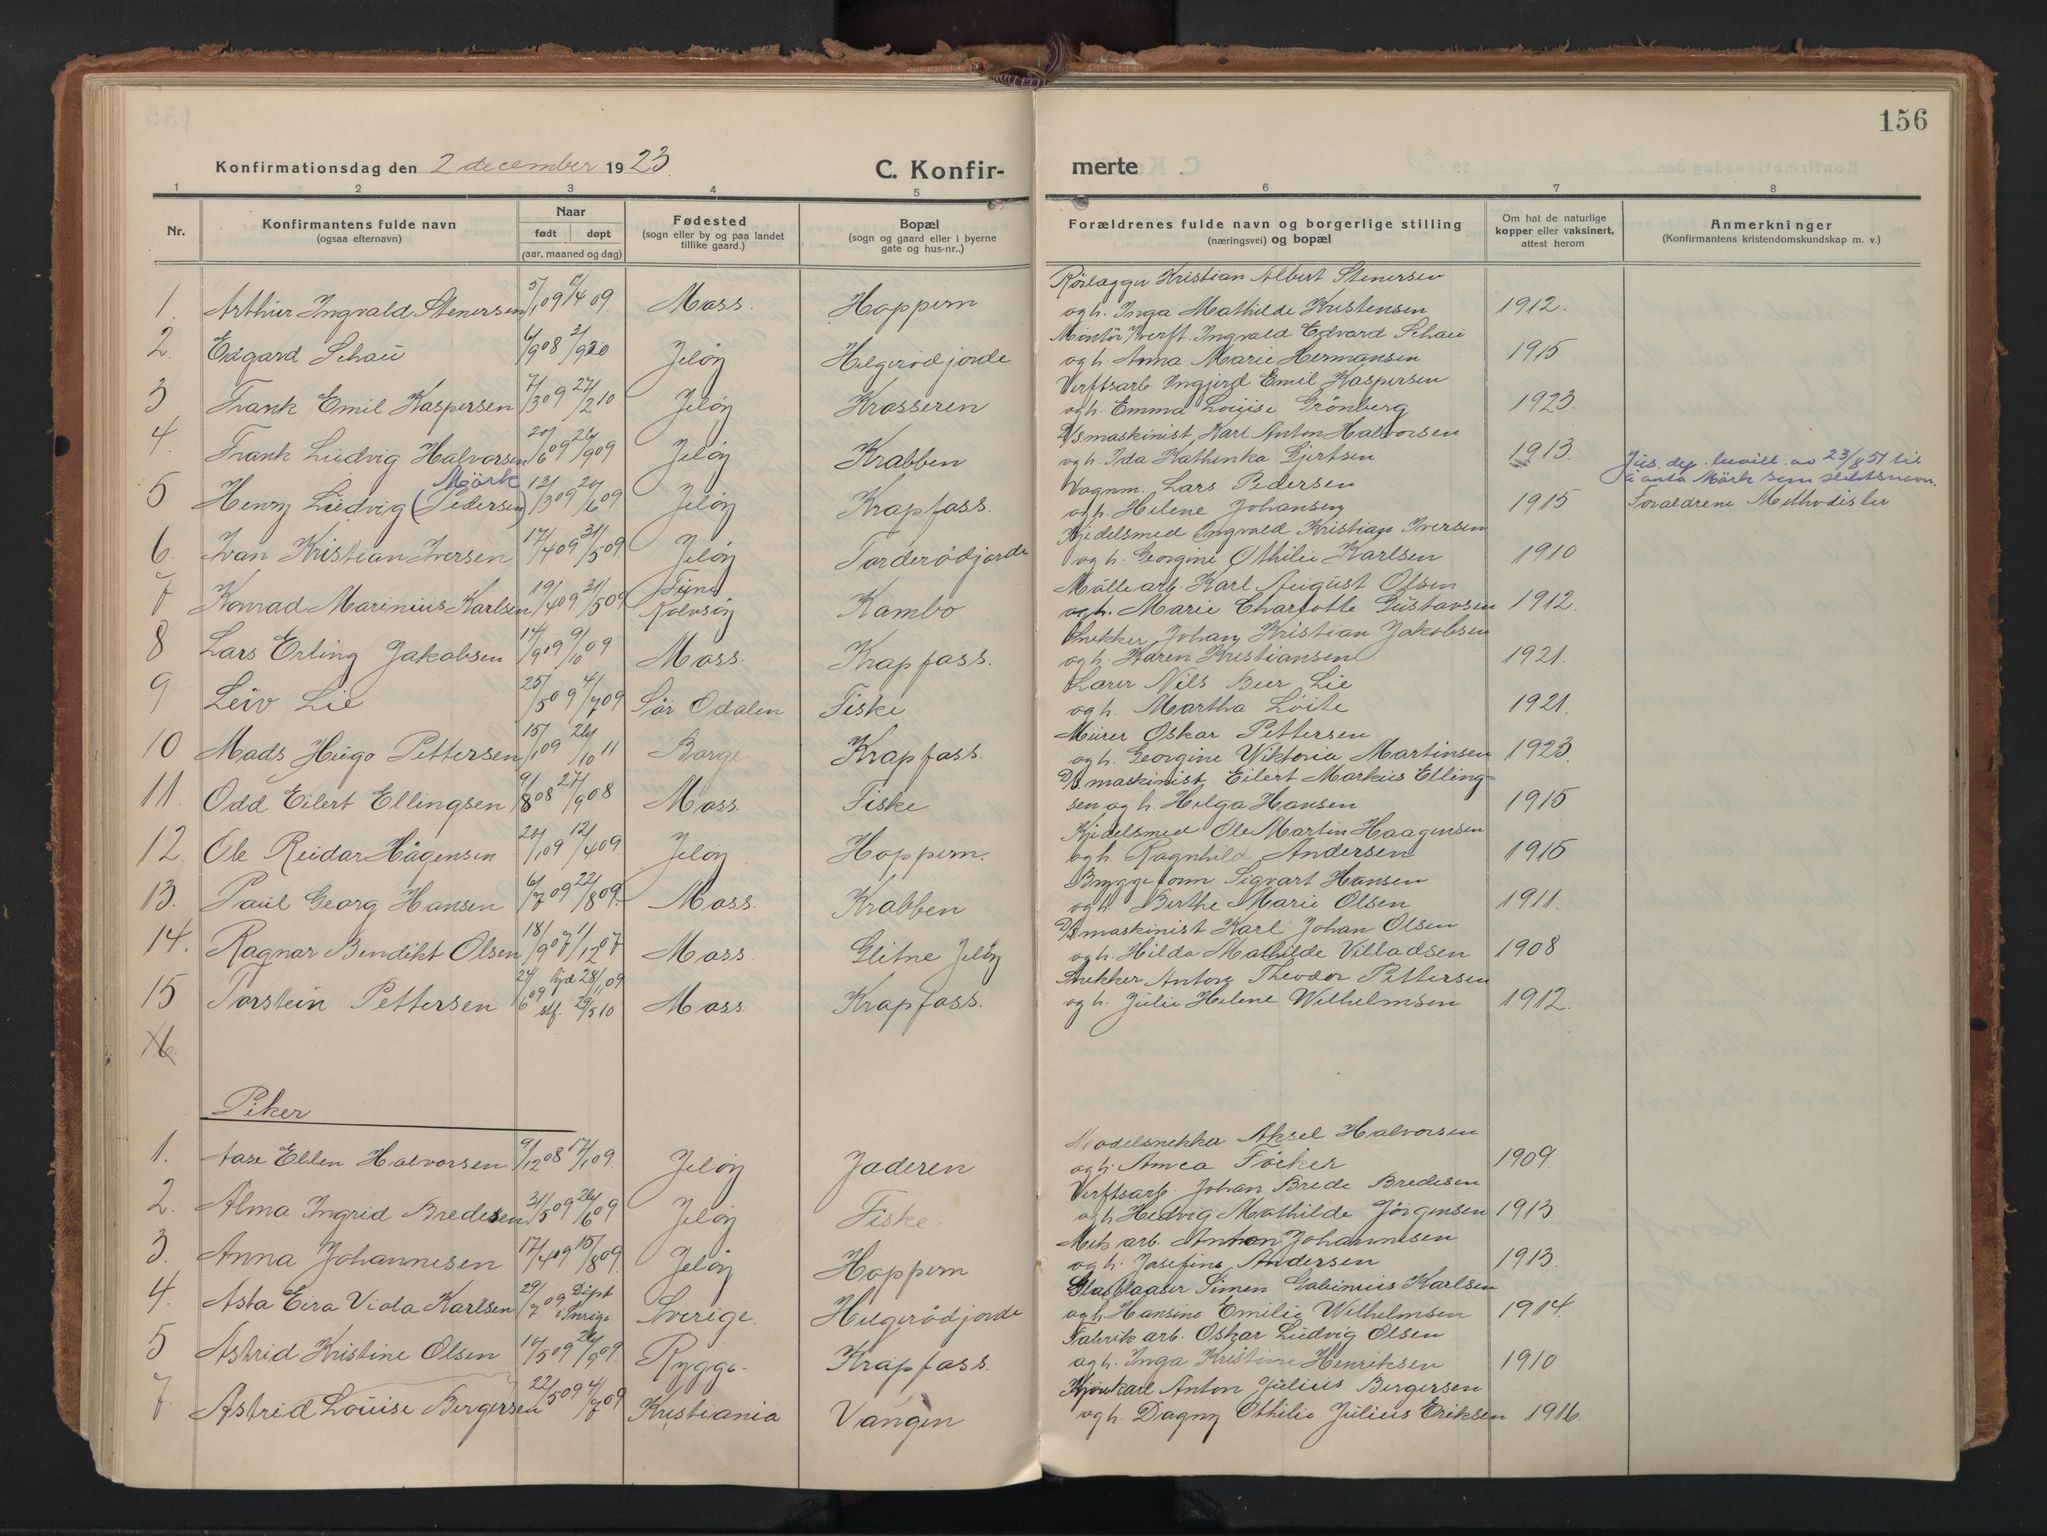 156
Konfirmationsdag den 2 december 1923.
C. Konfir-
merte
1 2 3 4 5 6 7 8
Nr.
Konfirmantens fulde navn
(ogsaa efternavn)
Naar
født døpt
(aar, maaned og dag)
Fødested
(sogn eller by og paa landet
tillike gaard.)
Bopæl
(sogn og gaard eller i byerne
gate og hus-nr..)
Forældrenes fulde navn og borgerlige stilling
(næringsvei) og bopæl
Om hat de naturlige
kopper eller vaksinert,
attest herom
Anmerkninger
(Konfirmantens kristendomskundskap m. v.)
Rörlægger Kristian Albert Stenersen
1. Arthur Ingvald Stenersen 5/1 09 /4 09 Moss. Hoppern og h. Inga Mathilde Kristensen 1912.
Ingvald Edvard Schau
2. Edgard Schau 6/9 08 Jeløy Helgerödjorde og h. Anna Marie Hermansen 1915
Verftsarb. Ingjerd Emil Kaspersen
3 Frank Emil Kaspersen 7/3 09 27/2 10 Jeløy Krosseren og h. Emma Louise Grönberg 1923.
D/S maskinist, Karl Anton Halvorsen
4. Frank Ludvig Halvorsen 20/6 09 26/9 09 Jeløy Krabben og h. Inda Kathinka Gjertsen 1913.
Jus. dep. bevill. av 23/8 51 til
å anta Mörk som slektsnavn.
Mörk
Vognm. Lars Pedersen
5 Henry Ludvig (Pedersen) 12/3 09 20/6 09 Jeløy Krapfoss. og h. Helene Johansen 1915 Foraldrene Methodister
Kjedelsmed Ingvald Kristian Iversen
6. Ivan Kristian Iversen 17/4 09 31/5 09. Jeløy Torderödjorde og h. Georgine Othilie Karlsen 1910
Mölle arb. Karl August Olsen
7 Konrad Marinius Karlsen 19/4 09 31/5 09 Rolvsøy Kambo og h. Marie Charlotte Gustavsen 1912.
Snekker Johan Kristian Jakobsen
8 Lars Erling Jakobsen 14/9 09 9/10 09 Moss. Krapfoss. og h. Karen Kristiansen 1921.
Lærer Nils Beer Lie
9 Leiv Lie 25/5 09 4/7 09 Sör Odalen Fiske og h. Martha Löite 1921.
Murer Oskar Pettersen
10 Mads Hugo Pettersen 15/1 09 26/10 11 Borge Krapfoss. og h. Georgine Wiktoria Martinsen 1923.
D/S maskinist Eilert Markus Elling-
11. Odd Eilert Ellingsen 9/8 08 27/9 08 Moss. Fiske sen og h. Helga Hansen 1915
Kjedelsmed Ole Martin Haagensen
12. Ole Reidar Hågensen 20/1 09 12/4 09. Jeløy. Hoppern. og h. Ragnhild Andersen 1915
Bryggeform Sigvart Hansen
13. Paul Georg Hansen 6/7 09 22/8 09. Moss. Krabben og h. Berthe Marie Olsen 1911.
D/S maskinist Karl Johan Olsen
14. Ragnar Bendikt Olsen 18/9 07 1/12 07 Moss. Glitne Jeløy og h. Hilda Mathilde Villadsen 1908
Snekker Anton Theodor Pettersen
15 Torstein Pettersen 24/6 09 hjd 28/11 09 stf. 29/5 10 Moss. Krapfoss. og h. Julie Helene Wilhelmsen 1912.
16
Piker
Modelsnekker Aksel Halvorsen
1. Aase Ellen Halvorsen 9/12 08 17/1 09. Jeløy Jaderen og h. Amea Föcker 1909.
Verftsarb. Johan Brede Bredesen
2. Alma Ingrid Bredesen 31/5 09 26/6 09 Jeløy Fiske og h. Hedvig Mathilde Jörgensen 1913
Mek arb. Anton Johannesen
3. Anna Johannesen 17/4 09 15/8 09. Jeløy Hoppern og h. Josefine Andersen 1913.
Glasblaaser Simen Gabinius Karlsen
4. Asta Eira Viola Karlsen 29/7 09 Döpt i Sverige. Sverige. Helgerödjorde og h. Hansine Emilie Wilhelmsen 1914.
Fabrik arb. Oskar Ludvig Olsen
5 Astrid Kristine Olsen 14/5 09 26/9 09. Rygge. Krapfoss. og h. Inga Kristine Henriksen 1910
Kjörekarl Anton Julius Bergersen
7. Astrid Louise Bergersen 22/5 09 4/7 09 Kristiania Vangen og h. Dagny Othilie Julius Eriksen 1916.